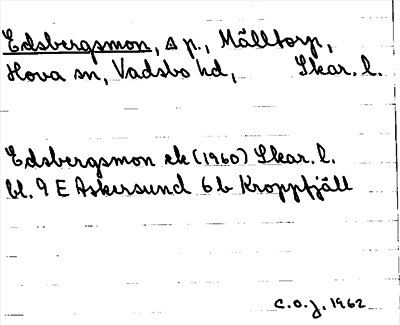 Edsbergsmon, Δ p., Mälltorp,
Hova sn, Vadsbo hd, Skar. l.
Edsbergsmon ek (1960) Skar. l.
bl. 9 E Askersund 6 b Kroppfjäll
C.O.J. 1962